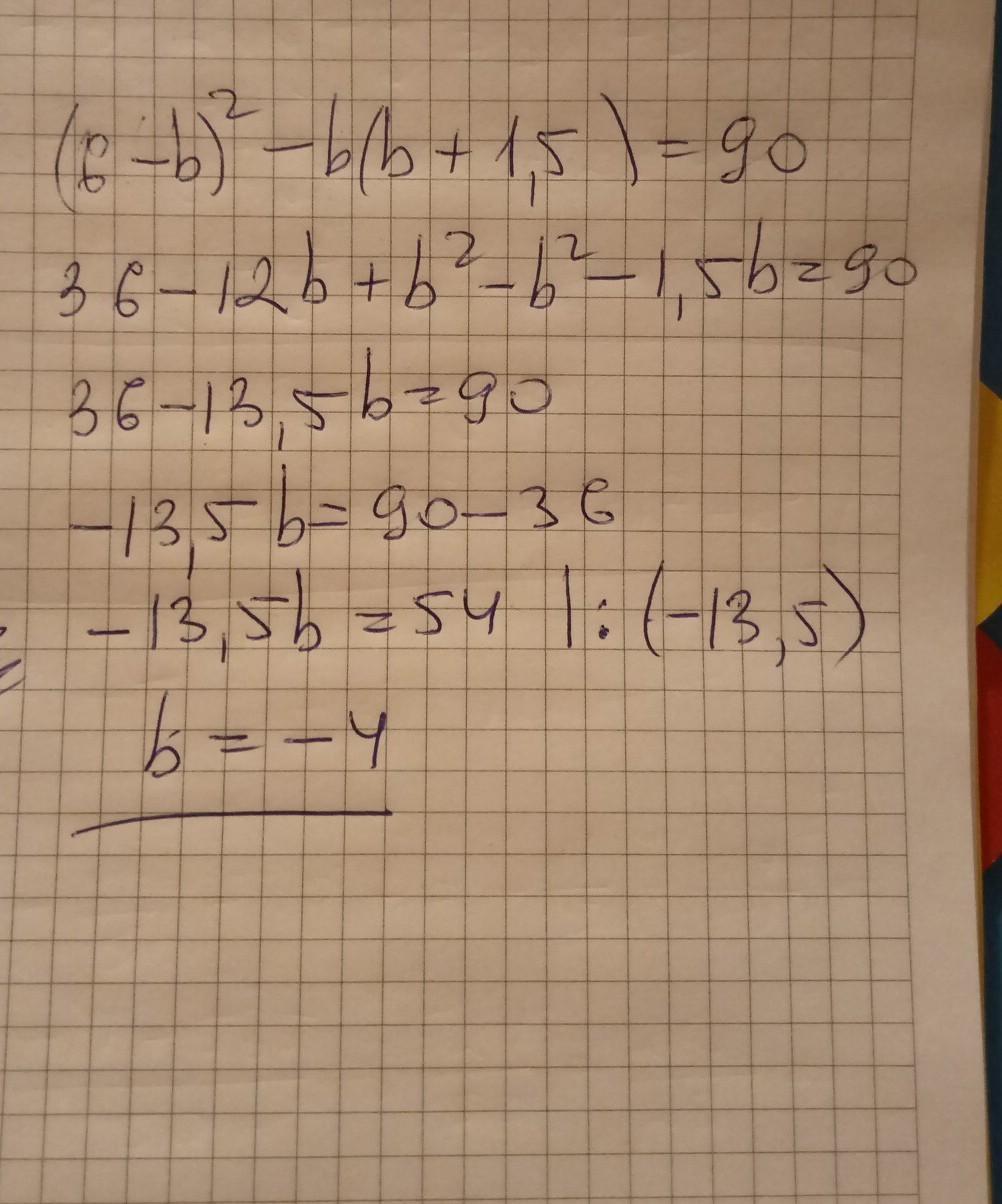 (6-b)²-b(b+1,5)=90
36-12b+b²-b²-1,5b=90
36-13,5b=90
-13,5b=90-36
-13,5b=54 |:(-13,5)
b=-4